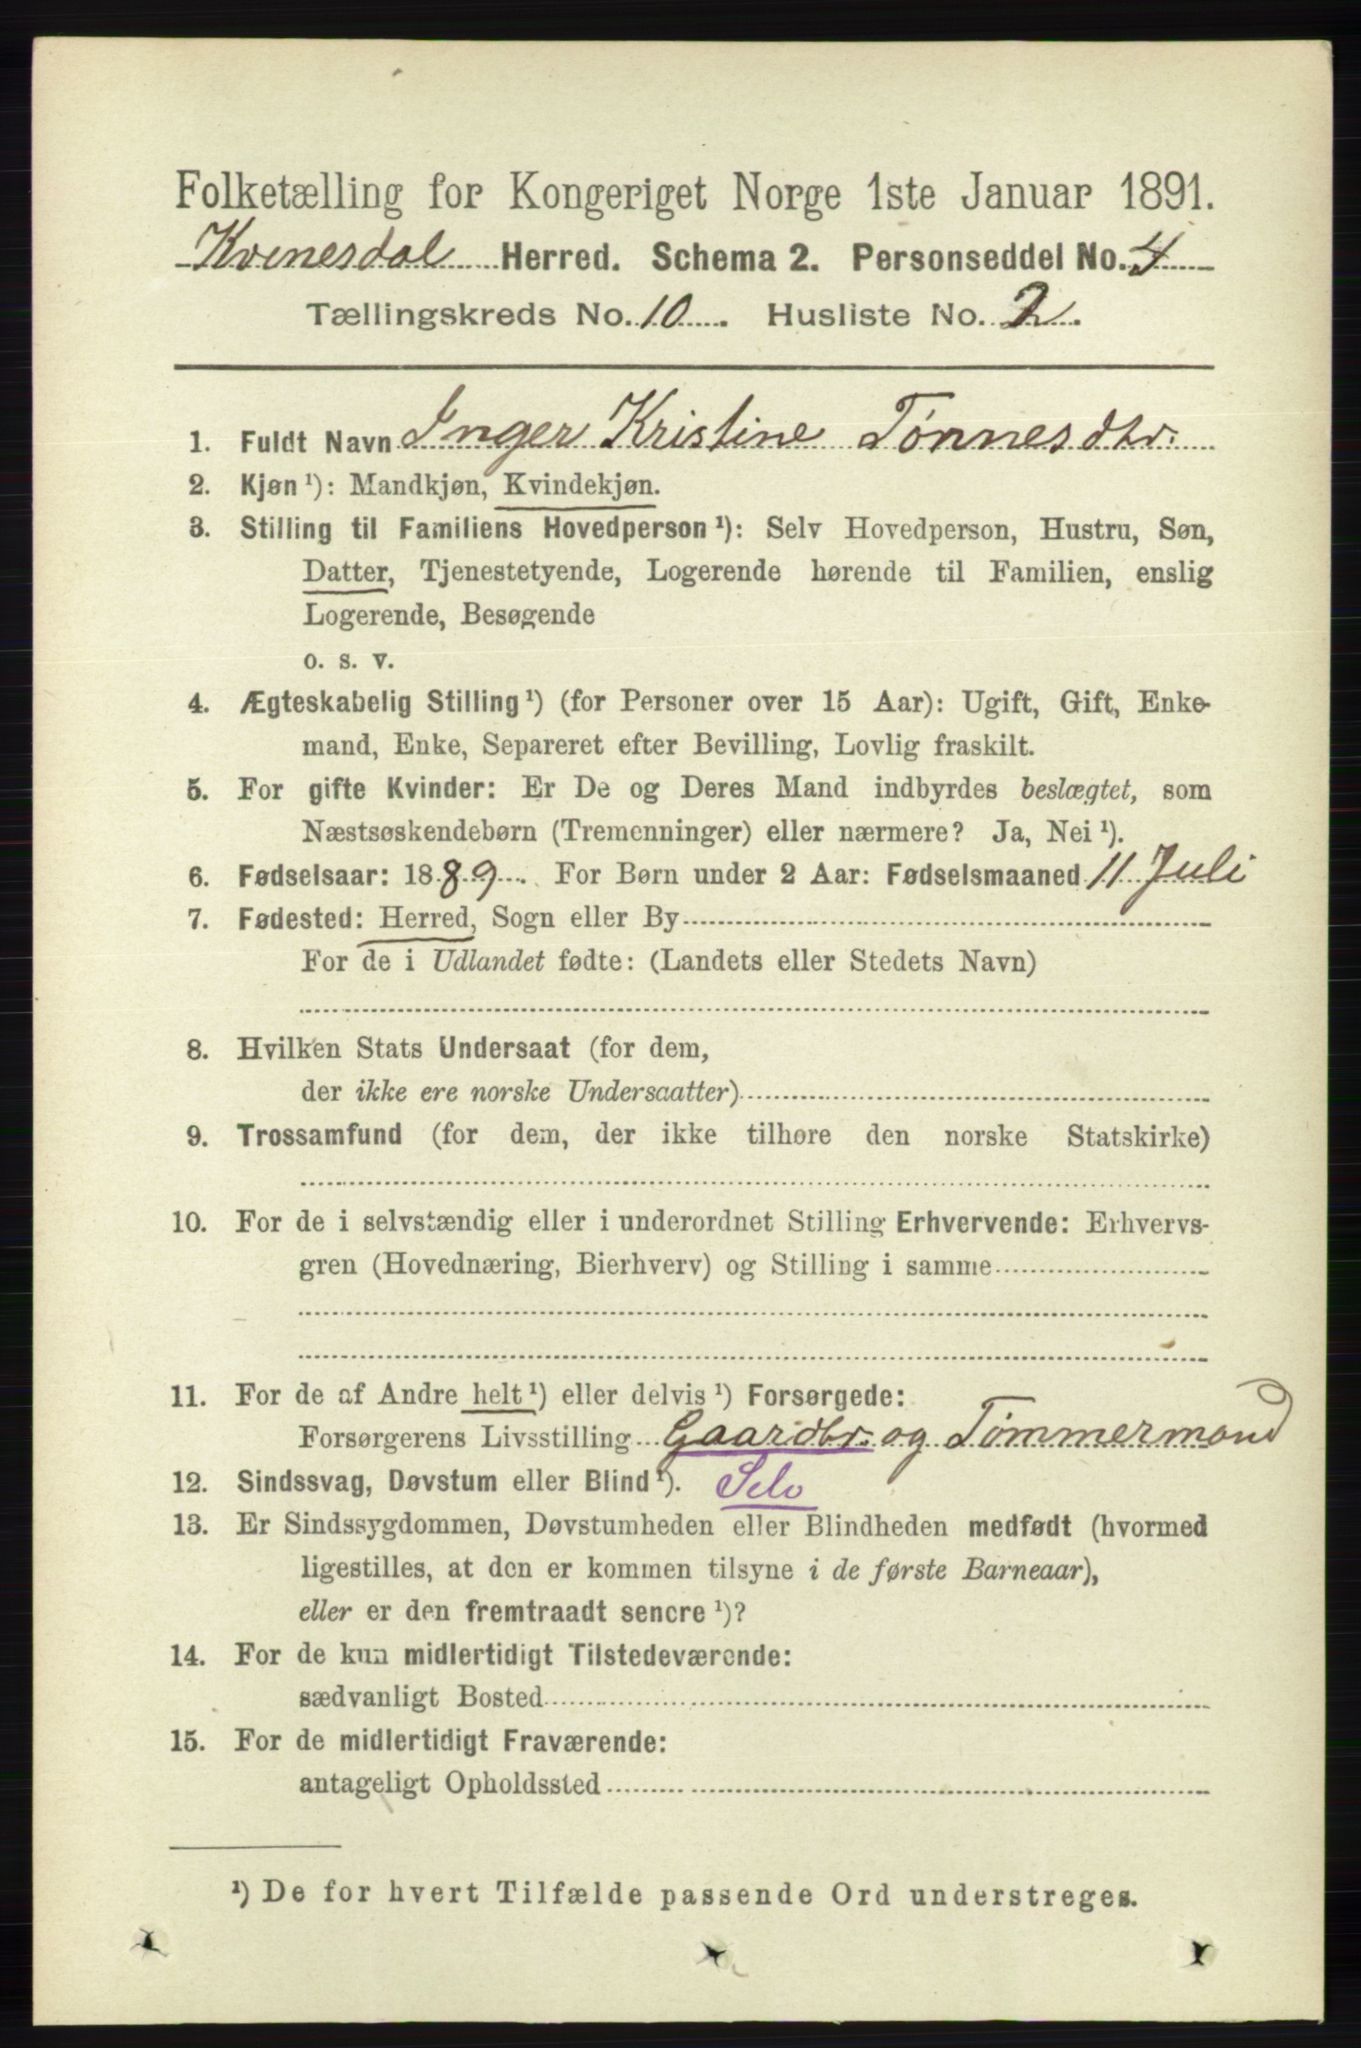 Folketælling for Kongeriget Norge 1ste Januar 1891.
Kvinesdal Herred. Schema 2. Personseddel No. 4
Tællingskreds No. 10. Husliste No. 2.
1. Fuldt Navn Inger Kristine Tønnesdtr.
2. Kjøn ¹): Mandkjøn, Kvindekjøn.
3. Stilling til Familiens Hovedperson ¹): Selv Hovedperson, Hustru, Søn,
Datter, Tjenestetyende, Logerende hørende til Familien, enslig
Logerende, Besøgende
o. s. v.
4. Ægteskabelig Stilling ¹) (for Personer over 15 Aar): Ugift, Gift, Enke-
mand, Enke, Separeret efter Bevilling, Lovlig fraskilt.
5. For gifte Kvinder: Er De og Deres Mand indbyrdes beslægtet, som
Næstsøskendebørn (Tremenninger) eller nærmere? Ja, Nei ¹).
6. Fødselsaar: 1889. For Børn under 2 Aar: Fødselsmaaned 11 Juli
7. Fødested: Herred, Sogn eller By
For de i Udlandet fødte: (Landets eller Stedets Navn)
8. Hvilken Stats Undersaat (for dem,
der ikke ere norske Undersaatter)
9. Trossamfund (for dem, der ikke tilhøre den norske Statskirke)
10. For de i selvstændig eller i underordnet Stilling Erhvervende: Erhvervs-
gren (Hovednæring, Bierhverv) og Stilling i samme
11. For de af Andre helt ¹) eller delvis ¹) Forsørgede:
Forsørgerens Livsstilling Gaardbr. og Tømmermand
12. Sindssvag, Døvstum eller Blind ¹). Selv
13. Er Sindssygdommen, Døvstumheden eller Blindheden medfødt (hvormed
ligestilles, at den er kommen tilsyne i de første Barneaar),
eller er den fremtraadt senere ¹)?
14. For de kun midlertidigt Tilstedeværende:
sædvanligt Bosted
15. For de midlertidigt Fraværende:
antageligt Opholdssted
¹) De for hvert Tilfælde passende Ord understreges.